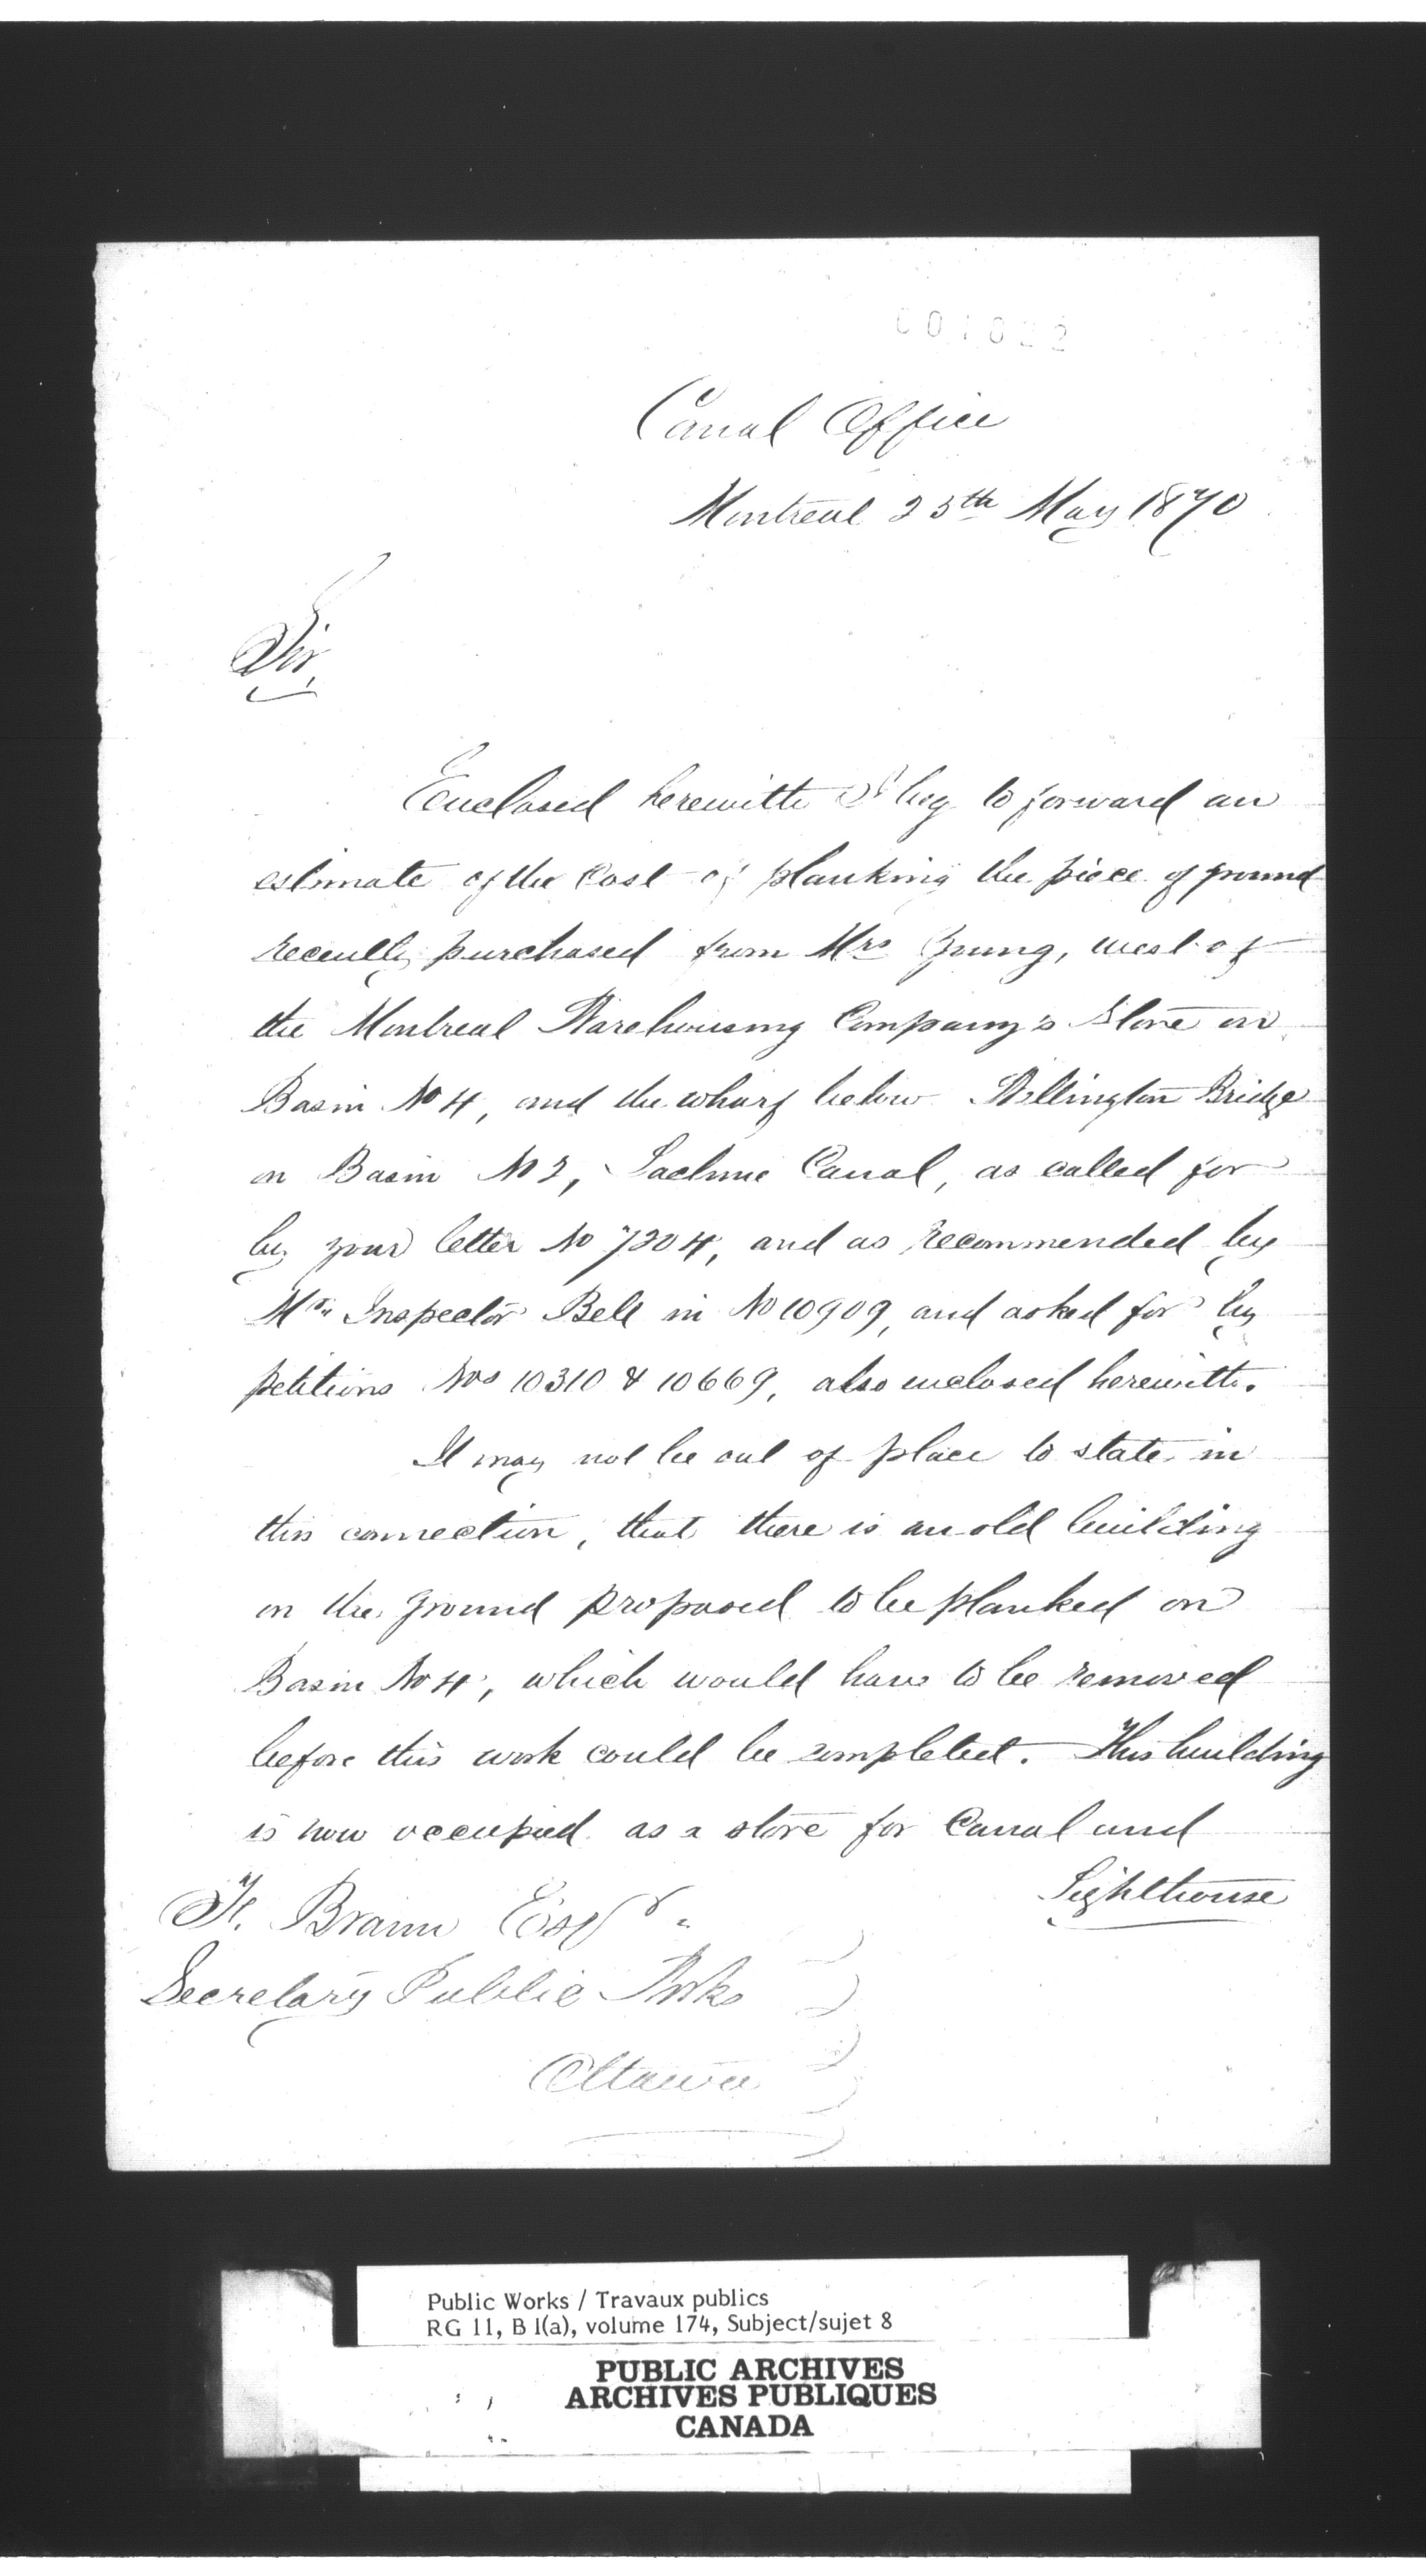 001022
Canal Office
Montreal 25th May 1870
Sir,
Enclosed herewith I beg to forward an
estimate of the Cost of planking the piece of ground
recently purchased from Mrs Young, west of
the Montreal Warehousing Company's Store on
Basin No 4, and the wharf below Wellington Bridge
on Basin No 2, Lachine Canal, as called for
by your letter No 7204, and as recommended by
Mr. Inspector Bell in No 10909, and asked for by
petitions Nos 10310 & 10669, also enclosed herewith.
It may not be out of place to state in
this connection, that there is an old building
on the ground proposed to be planked on
Basin No 4, which would have to be removed
before this work could be completed. This building
is now occupied as a store for Canal and
Lighthouse
F. Braun Esqr.
Secretary Public Wks
Ottawa
Public Works / Travaux publics
RG 11, B 1(a), volume 174, Subject/sujet 8
PUBLIC ARCHIVES
ARCHIVES PUBLIQUES
CANADA